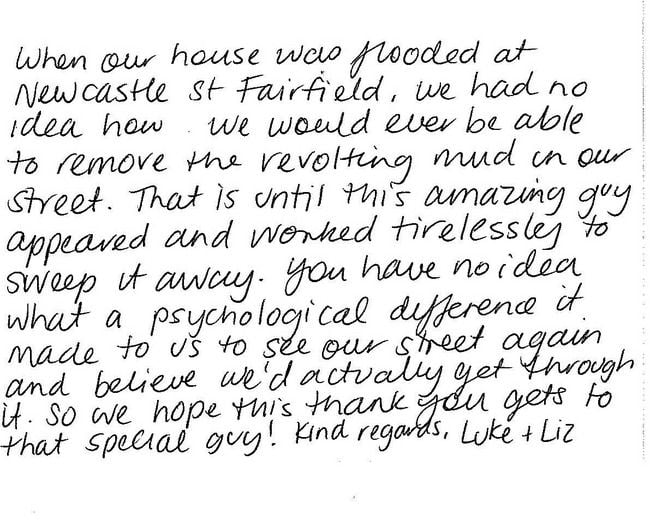 When our house was flooded at
Newcastle St Fairfield, we had no
idea how we would ever be able
to remove the revolting mud in our
street. That is until this amazing guy
appeared and worked tirelessley to
sweep it away. You have no idea
what a psychological difference it
made to us to see our street again
and believe we'd actually get through
it. So we hope this thank you gets to
that special guy! Kind regards, Luke + Liz